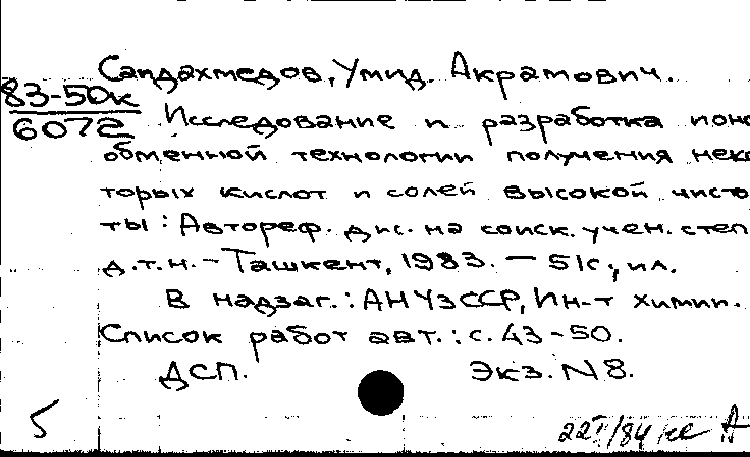 Саидахмедов, Умид. Акрамович.
83-50к
6072
Исследование и разработка ионо
обменной технологии получения неко
торых кислот и солей высокой чисто
ты: Автореф. дис. на соиск. учен. степ
д.т.н. - Ташкент, 1983. - 51с., ил.
В надзаг.: АН УзССР, Ин-т химии.
Список работ авт.: с. 43-50.
ДСП. Экз. N 8.
5
/84 А